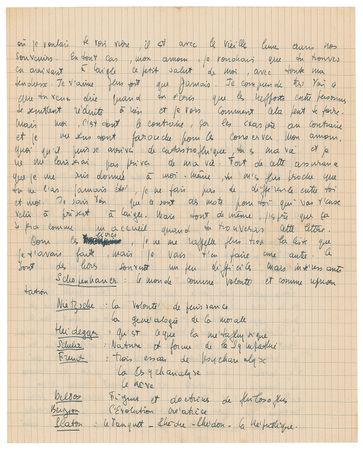 où je voulais te voir vivre, il est avec le vieille lune dans nos
souvenirs. En tout cas, mon amour, je voudrais que tu trouves
en arrivant à Laigle ce petit salut de moi, avec toute ma
tendresse. Je t'aime plus fort que jamais. Je comprends très bien
que tu veux dire quand tu écris que les rapports entre
se sentent réduits à rien et je vois comment cela peut se faire.
Mais moi c'est tout le contraire, je
et je me sens farouche pour les conserver. Mon amour
quoi qu'il puisse arriver de catastrophique, tu es ma vie et je
ne me laisserai pas priver de ma vie. Fort de cette assurance
que je me suis donnée à moi-même, tu m'es plus proche que
tu ne l'as jamais été, je ne fais pas de différence entre toi
et moi. Je sais bien que ce sont des mots pour toi qui vas t'ense
velir à présent à Laigle. Mais tout de même, j'espère que ça
te fera comme un accueil quand tu trouveras cette lettre.
Pour les livres, je ne me rappelle plus trop la liste que
je t'avais faite, mais je vais t'en faire une autre. Ce
sont des livres souvent un peu difficiles mais intéressants
Schopenhauer : le monde comme volonté et comme représen
tation
Nietzsche : la volonté de puissance
la généalogie de la morale
Heidegger : Qu'est ce que la métaphysique
Scheler : Nature et forme de la Sympathie
Freud : Trois essais de psychanalyse
la Psychanalyse
le rêve
Delbos : Figures et doctrines de philosophes
Bergson : L'Évolution créatrice
Platon : Le Banquet - Phèdre - Phédon - La République.